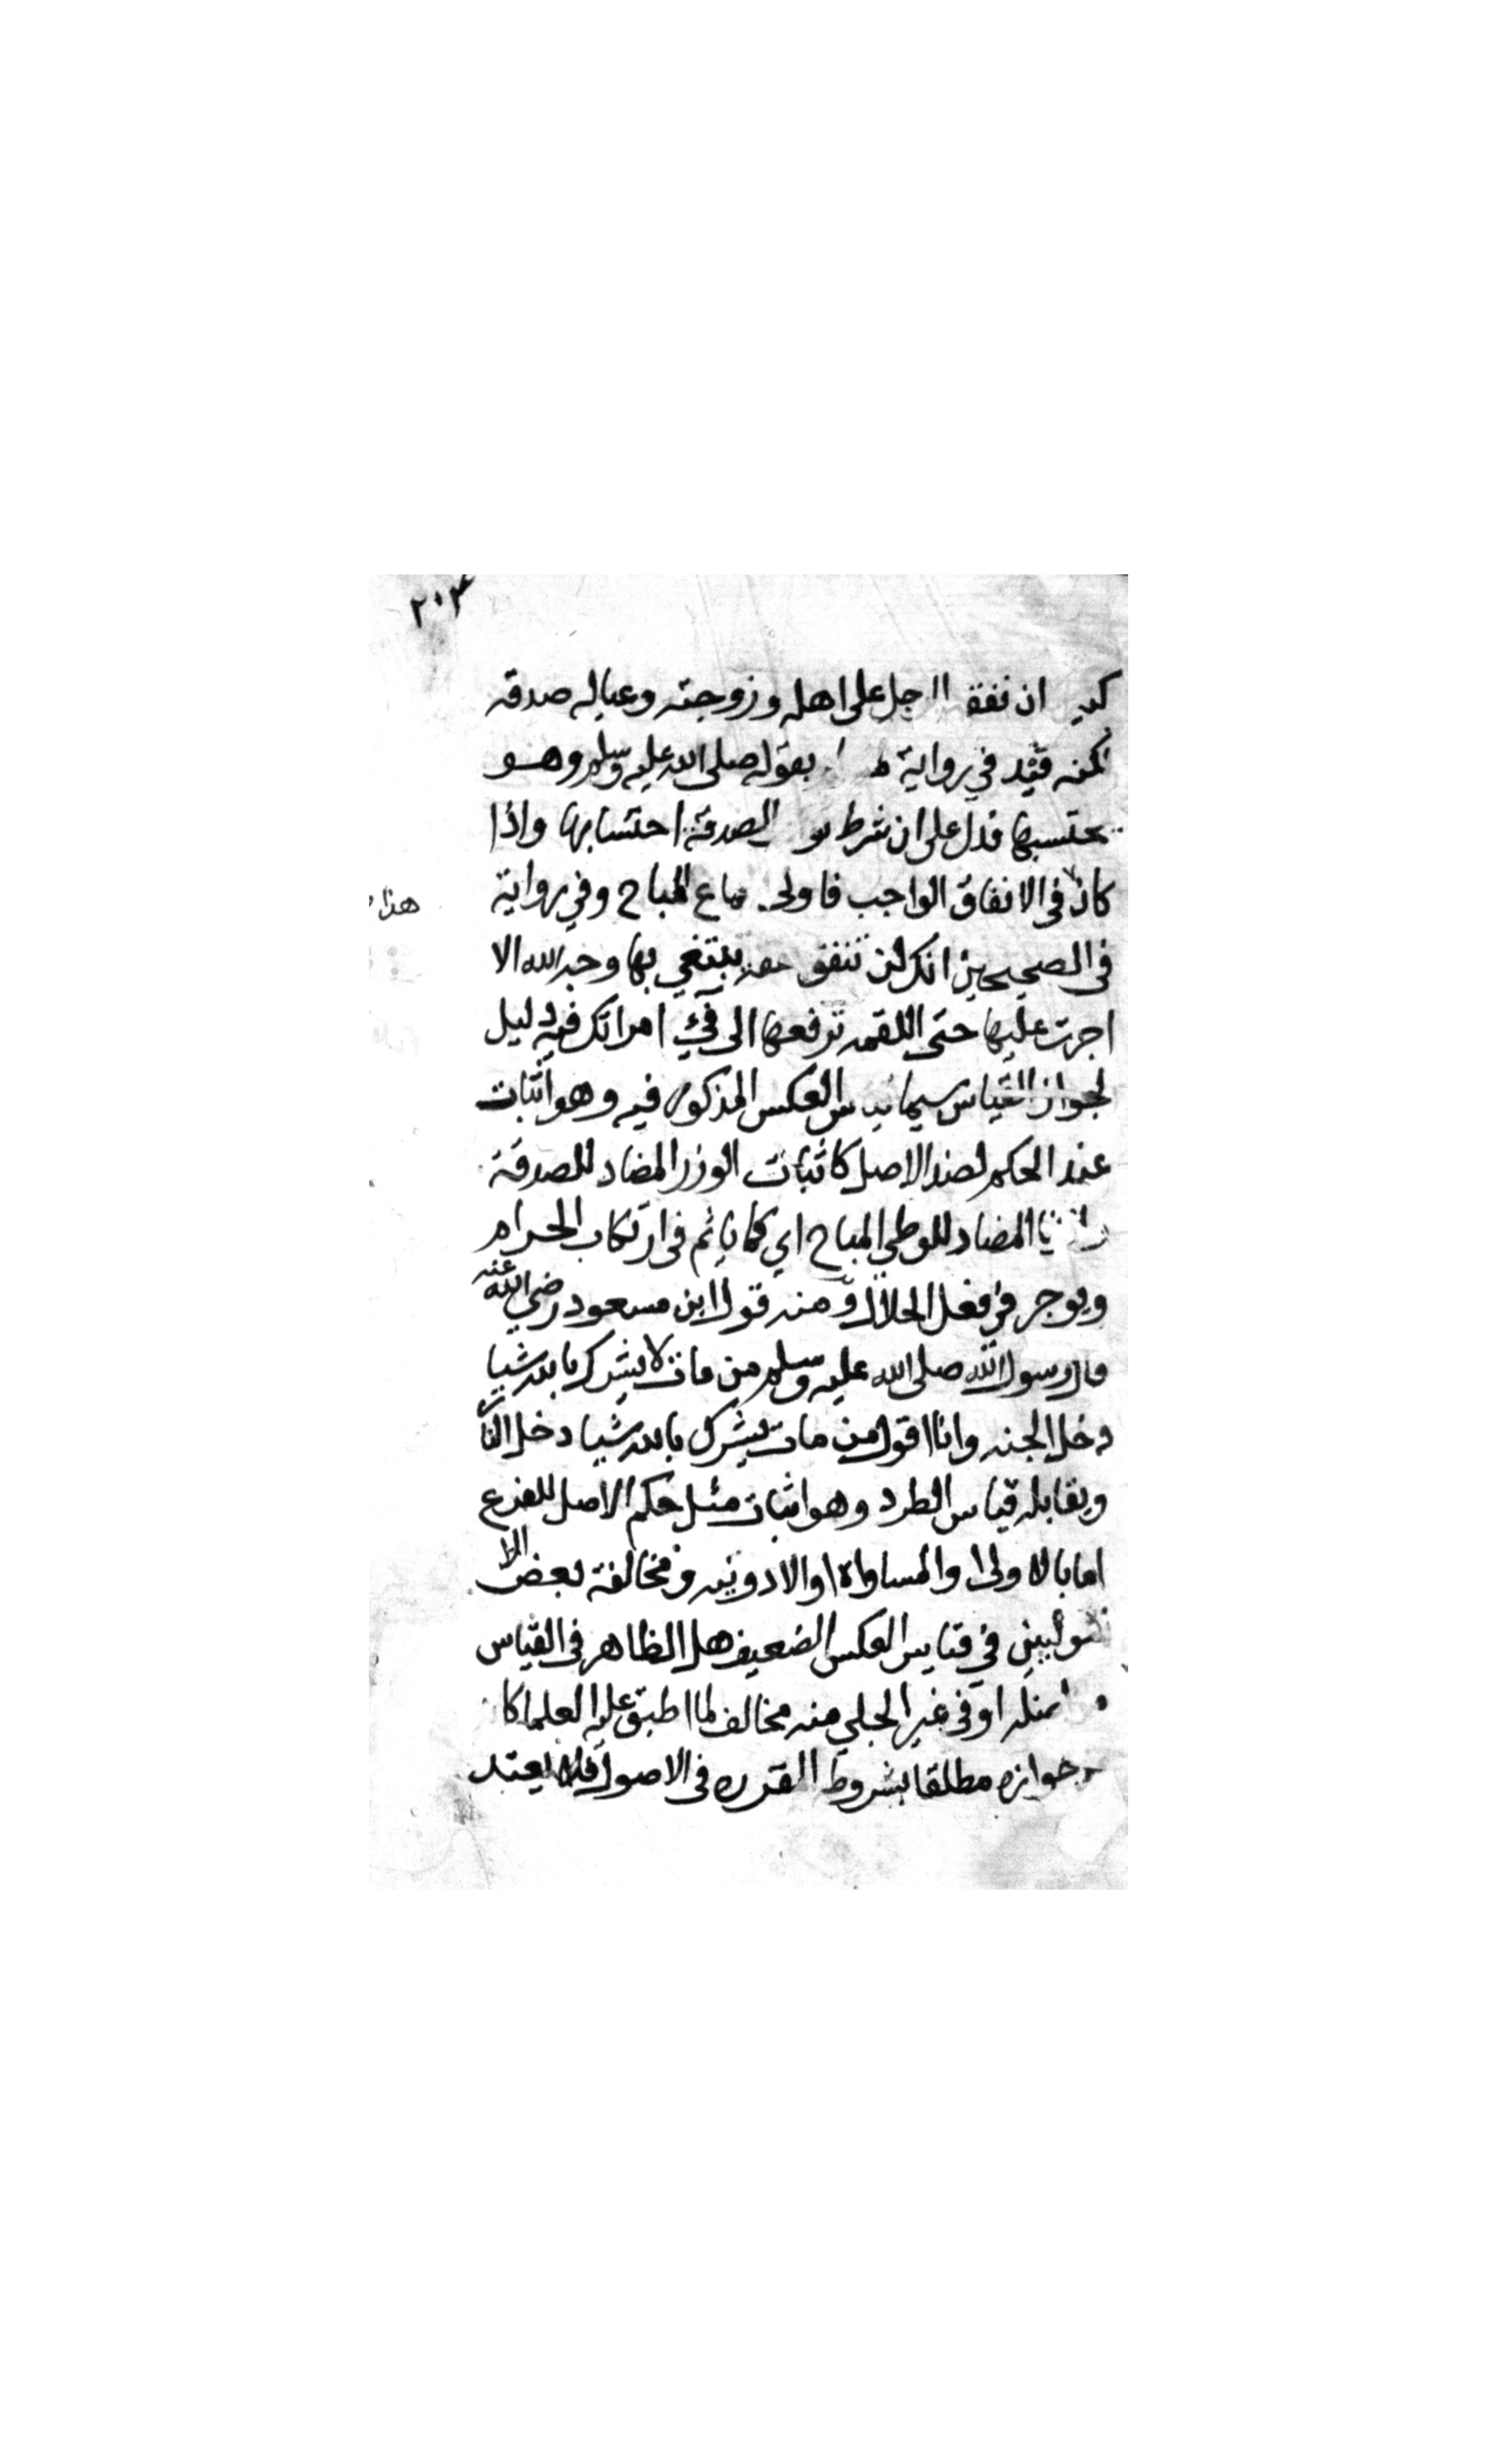 ٢٠٣
ان نفقة الرجل على اهله وزوجته وعياله صدقه
لكنه قيد في رواية بقوله صلى الله عليه وسلم وهو
يحتسبها فدل على ان شرط الصدقة احتسابها واذا
كان في الانفاق الواجب فاولى المباح وفي رواية
هذا
في الصحيحين انك لن تنفق نفقة يبتغي بها وجه الله الا
اجرت عليها حتى اللقمه ترفعها الى في امراتك ففيه دليل
لجواز القياس سيما العكس المذكور فيه وهو اثبات
عند الحكم لضد الاصل كاثبات الوزر المضاد للصدقة
المضاد للوطي المباح اي كما ياثم في ارتكاب الحرام
ويوجر في فعل الحلال ومنه قول ابن مسعود رضي الله عنه
قال رسول الله صلى الله عليه وسلم من مات لا يشرك بالله شيا
دخل الجنه وانا اقول من مات يشرك بالله شيا دخل النار
ويقابله قياس الطرد وهو اثبات مثل حكم الاصل للفرع
اما بالاولى او المساواة او الادونيه ومخالفة بعض الا
صوليين في قياس العكس الضعيف هل الظاهر في القياس
او في غير الجلي منه مخالف لما اطبق عليه العلما كا
جوازه مطلقا بشروط المقرره في الاصول فلا يعتد